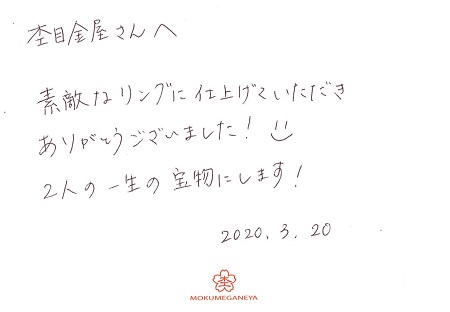 杢目金屋さんへ
素敵なリングに仕上げていただき
ありがとうございました！
2人の一生の宝物にします！
2020.3.20
杢
MOKUMEGANEYA